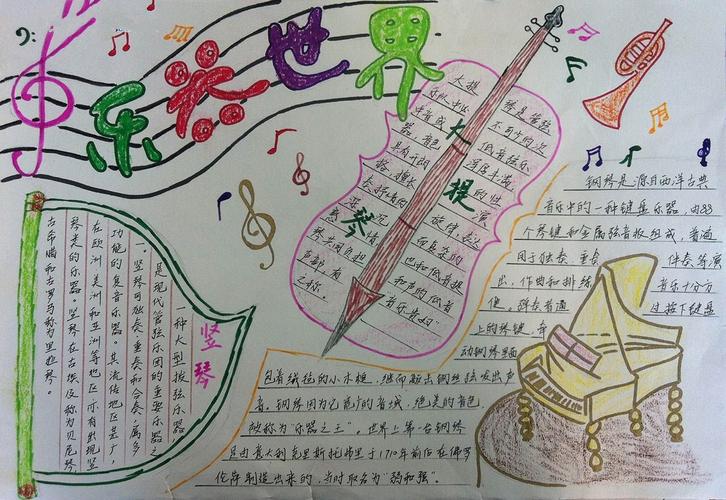 乐器世界
大提琴
大提 琴是管弦
乐队中必 不可少的次
中音或 低音弦乐
器，音色 浑厚丰满，
具有开朗 的性
格，擅长 演
奏抒情的 旋律，表达
而复杂的
情
琴共同负担 也和低音提
声部，有 和声的低音
之称。 "音乐贵妇"
竖琴
一种大型拨弦乐器
是现代管弦乐团的重要乐器之
一。竖琴可独奏、重奏和合奏，属多
功能的复音乐器。其流传地区甚广，
在欧洲、美洲和亚洲等地区亦有出现竖
琴类的乐器。竖琴在古埃及称为贝尼琴，
古希腊和古罗马称为里拉琴。
钢琴是源自西洋古典
音乐中的一种键盘乐器，由88
个琴键和金属弦音板组成，普遍
用于独奏 重奏 伴奏等演
出，作曲和排练 音乐十分方
便。弹奏者通 过按下键盘
上的琴键，牵
动钢琴里面
包着绒毡的小木槌，继而敲击钢丝弦发出声
音。钢琴因为它宽广的音域，绝美的音色，
被称为“乐器之王”。世界上第一台钢琴
是由意大利克里斯托弗里于1710年前后在佛罗
伦萨制造出来的，当时取名为“弱和强”。